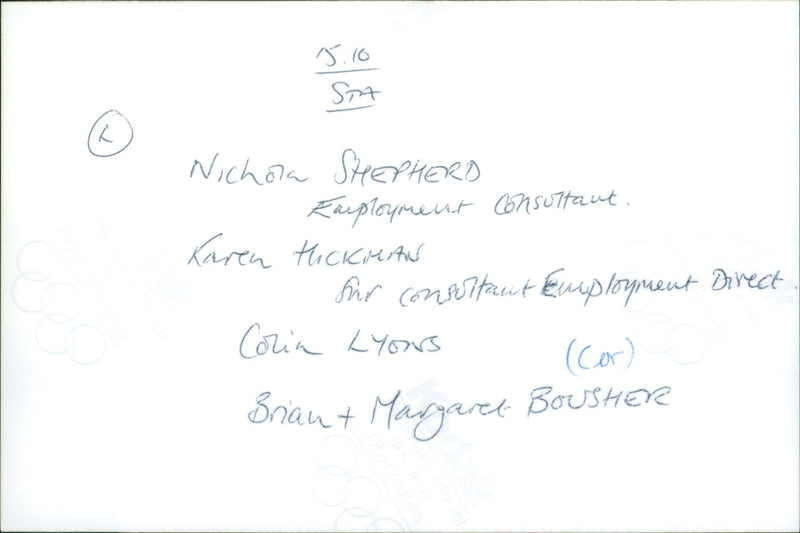 15.10
STA
L
Nichola SHEPHERD
Employment Consultant.
Karen HICKMAN
Snr Consultant Employment Direct.
Colin LYONS
(Cor)
Brian + Margaret BOUSHER
Kodak